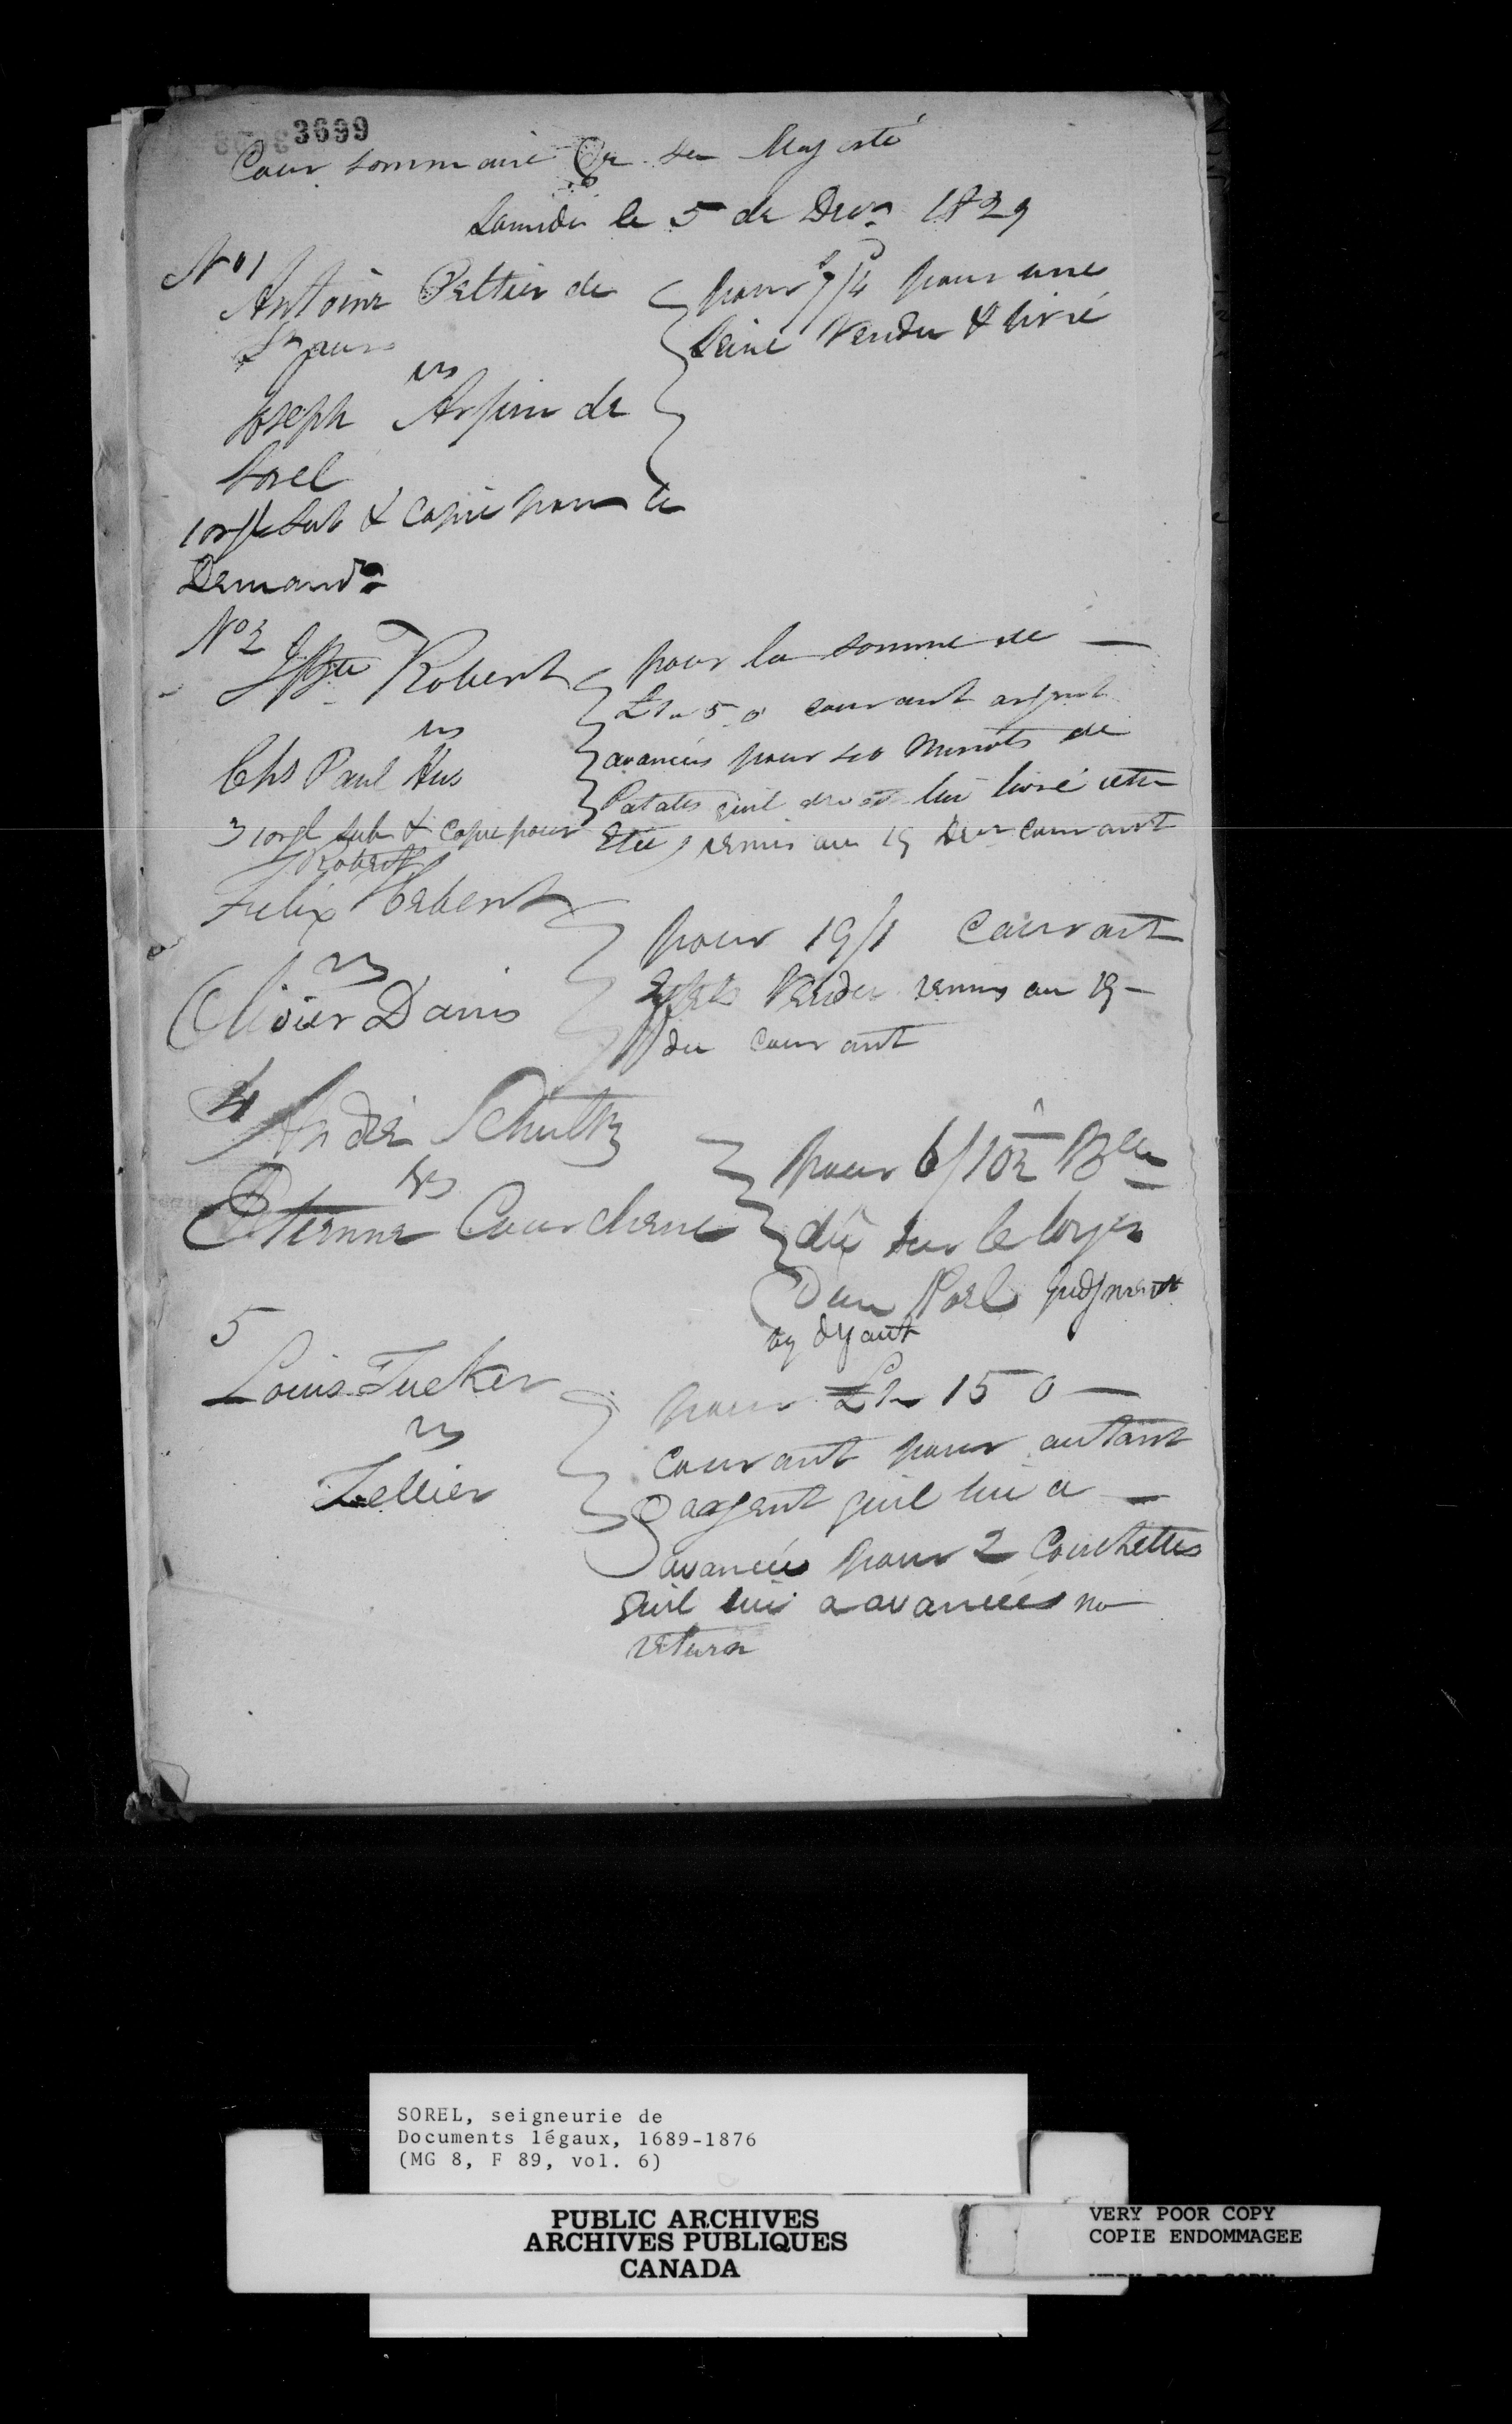 3699
Cour sommaire De Sa Majesté
Samedi le 5 de Decr 1829
No 1
Antoine Peltier de
vs
Joseph Arpin de
Sorel
1 orgl sub & Copie pour le
Demandr
pour 7/4 pour une
Vendu & livré
No 2
JBte Robert
vs
Chs Paul Hus
1 orgl sub & Copie pour
Robert
pour la somme de
£1 " 5 0 courant argent
avancées pour 40 Minots de
Patates quil devoit lui livré cette
Eté, remis au 19 Decr courant
3
Felix Hebert
vs
Olivier Danis
pour 19/1 Courant
Effets Vendu remis au 19
du courant
4
André Schultz
vs
Etienne Courchene
pour 6/10½
dû sur le loyer
Dun Poel Judgment
by
5
Louis Tucker
vs
Tellier
pour £1 " 15 0
courant pour autant
Dargent quil lui a
avancées pour 2 Couchettes
quil lui a avancées no
return
SOREL, seigneurie de
Documents légaux, 1689-1876
(MG 8, F 89, vol. 6)
PUBLIC ARCHIVES
ARCHIVES PUBLIQUES
CANADA
VERY POOR COPY
COPIE ENDOMMAGEE
VERY POOR COPY